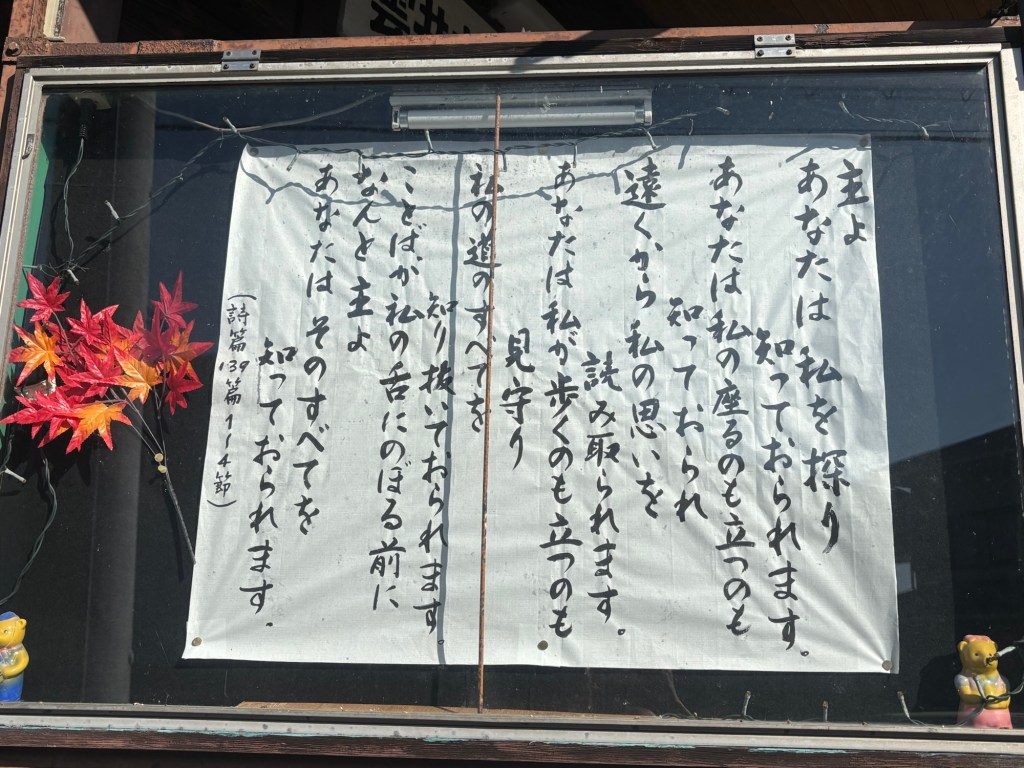 主よ
あなたは私を探り
知っておられます。
あなたは私の座るのも立つのも
知っておられ
遠くから私の思いを
読み取られます。
あなたは私が歩くのも立つのも
見守り
私の道のすべてを
知り抜いておられます。
ことばが私の舌にのぼる前に
なんと主よ
あなたはそのすべてを
知っておられます.
(詩篇139篇1-4節)